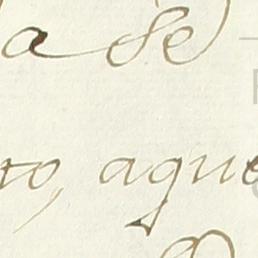 a se
to, aque